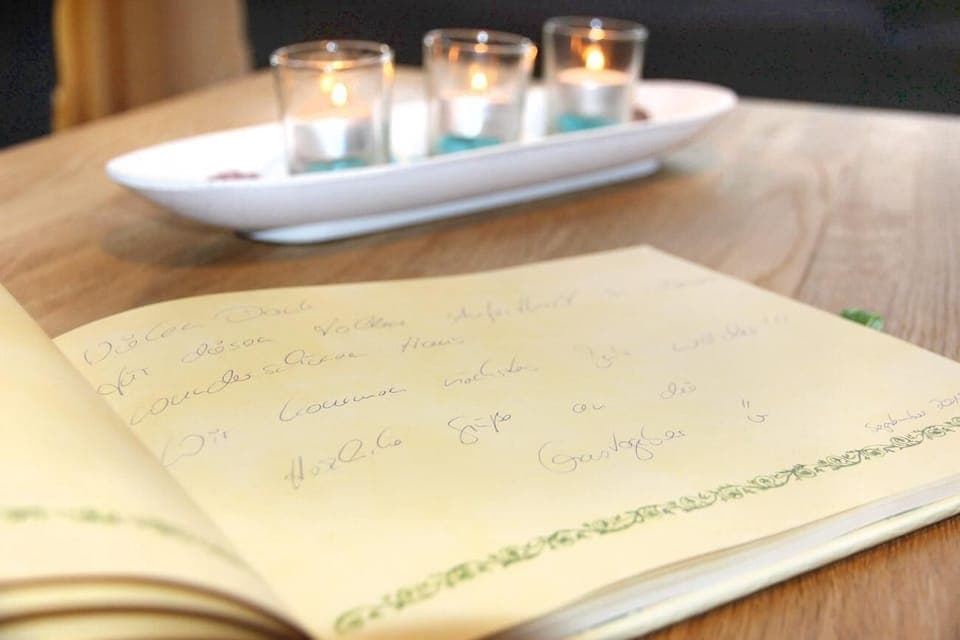 Vielen Dank
für diesen tollen Aufenthalt in diesem
wunderschönen Haus
Wir kommen nächstes Jahr wieder!!!
Herzliche Grüße an die
Gastgeber ü
September 201